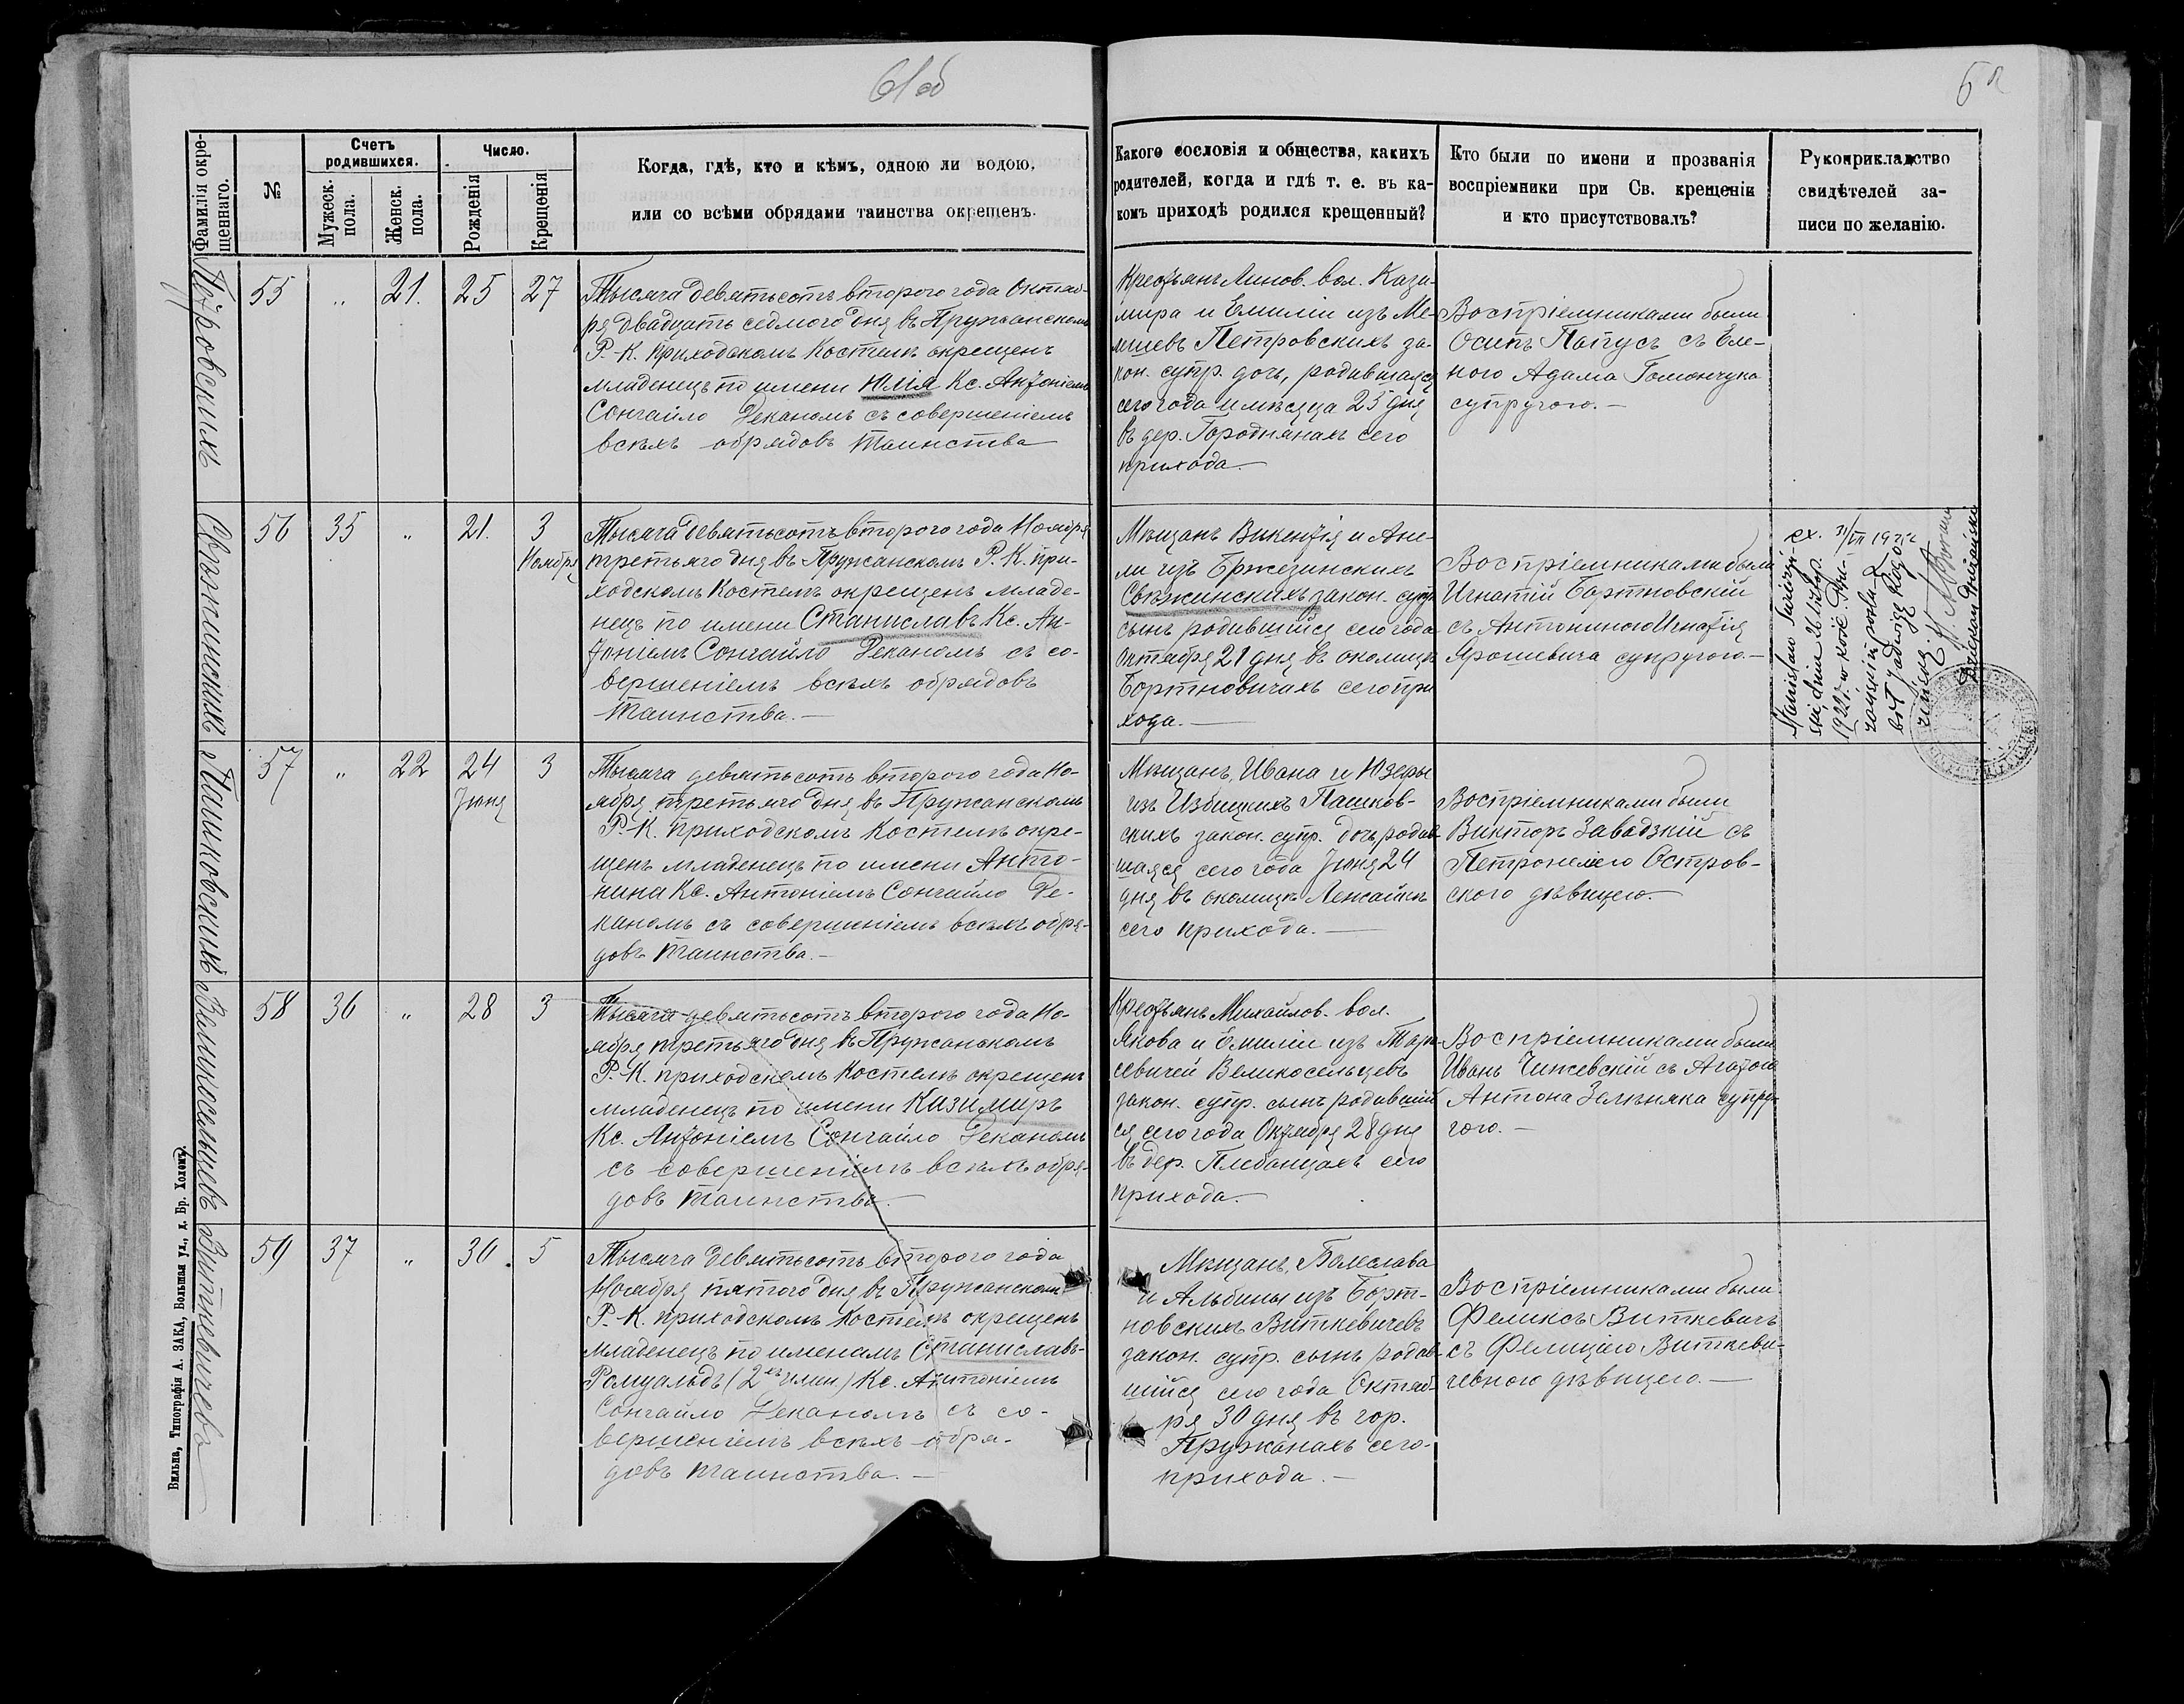 61об
Фамилія окрещеннаго.
№
Счетъ родившихся.
Мужеск. пола.
Женск. пола.
Число.
Рожденія
Крещенія
Когда, гдѣ, кто и кѣмъ, одною ли водою,
или со всѣми обрядами таинства окрещенъ.
Какого сословія и общества, какихъ
родителей, когда и гдѣ т. е. въ ка-
комъ приходѣ родился крещенный?
Кто были по имени и прозванія
воспріемники при Св. крещеніи
и кто присутствовалъ?
Рукоприкладство
свидѣтелей за-
писи по желанію.
Петровскихъ
55 " 21. 25 27
Тысяча девятьсотъ второго года Октяб-
ря двадцать седмого дня въ Пружанскомъ
Р.-К. приходскомъ Костелѣ окрещенъ
младенецъ по имени Юлія Кс. Антоніемъ
Сонгайло Деканомъ съ совершеніемъ
всѣхъ обрядовъ Таинства
Крестьянъ Линов. вол. Кази-
мира и Емиліи изъ
Петровскихъ за-
кон. супр. дочь, родившаяся
сего года и мѣсяца 25 дня
въ дер. Городнянахъ сего
прихода.
Воспріемниками были
Осипъ съ Еле-
ною Адама Гомончука
супругою.
Свѣжинскихъ
56 35 " 21. 3
Ноября
Тысяча девятьсотъ второго года Ноября
третьяго дня въ Пружанскомъ Р. К. при-
ходскомъ Костелѣ окрещенъ младе-
нецъ по имени Станиславъ Кс. Ан-
тоніемъ Сонгайло Деканомъ съ со-
вершеніемъ всѣхъ обрядовъ
Таинства.
Мѣщанъ Викентія и Ане-
ли изъ Бржезинскихъ
Свѣжинскихъ закон. супр.
сынъ родившійся сего года
Октября 21 дня въ околицѣ
Бортновичахъ сего при
хода.
Воспріемниками были
Игнатій Бортновскій
съ Антониною Игнатія
Ярошевича супругою.
ex. 31/VII 1922
Stanisław
ski, dnia 26 listop.
1922 r. w kość. Pru-
żańskim poślu-
bił Jadwigę
Dziekan Prużański
Пашковскихъ
57 " 22 24 3
Іюня
Тысяча девятьсотъ второго года Но-
ября третьяго дня въ Пружанскомъ
Р.-К. приходскомъ Костелѣ окре-
щенъ младенецъ по имени Анто-
нина Кс. Антоніемъ Сонгайло Де-
каномъ съ совершеніемъ всѣхъ обря-
довъ таинства.
Мѣщанъ, Ивана и Юзефы
изъ Избицкихъ Пашков-
скихъ закон. супр. дочь, родив-
шаяся сего года Іюня 24
дня въ околицѣ Лежайкѣ
сего прихода.
Воспріемниками были
Викторъ Завадзкій съ
Петронелею Остров-
ского дѣвицею.
Великосельцевъ
58 36 " 28 3
Тысяча девятьсотъ второго года Но-
ября третьяго дня въ Пружанскомъ
Р.-К. приходскомъ Костелѣ окрещенъ
младенецъ по имени Казимиръ
Кс. Антоніемъ Сонгайло Деканомъ
съ совершеніемъ всѣхъ обря-
довъ таинства.
Крестьянъ Михайлов. вол.
Якова и Емиліи изъ Тара-
севичей Великосельцевъ
закон. супр. сынъ родившій
ся сего года Октября 28 дня
въ дер. Плебанцахъ сего
прихода.
Воспріемниками были
Иванъ Чижевскій съ Агатою
Антона Зелѣняка супру-
гою.
Виткевичевъ
59 37 " 30. 5
Тысяча девятьсотъ второго года
Ноября пятого дня въ Пружанскомъ
Р.-К. приходскомъ Костелѣ окрещенъ
младенецъ по именамъ Станиславъ-
Ромуальдъ (2хъ имен) Кс. Антоніемъ
Сонгайло Деканомъ съ со-
вершеніемъ всѣхъ обря-
довъ таинства.
Мѣщанъ, Болеслава
и Альбины изъ Борт-
новскихъ Виткевичевъ
закон. супр. сынъ родив-
шійся сего года Октяб-
ря 30 дня въ гор.
Пружанахъ сего
прихода.
Воспріемниками были
Феликсъ Виткевичъ
съ Фелиціею Виткеви-
чевною дѣвицею.
Вильна, Типографія А. ЗАКА, Большая ул., д. Бр. Холемъ.